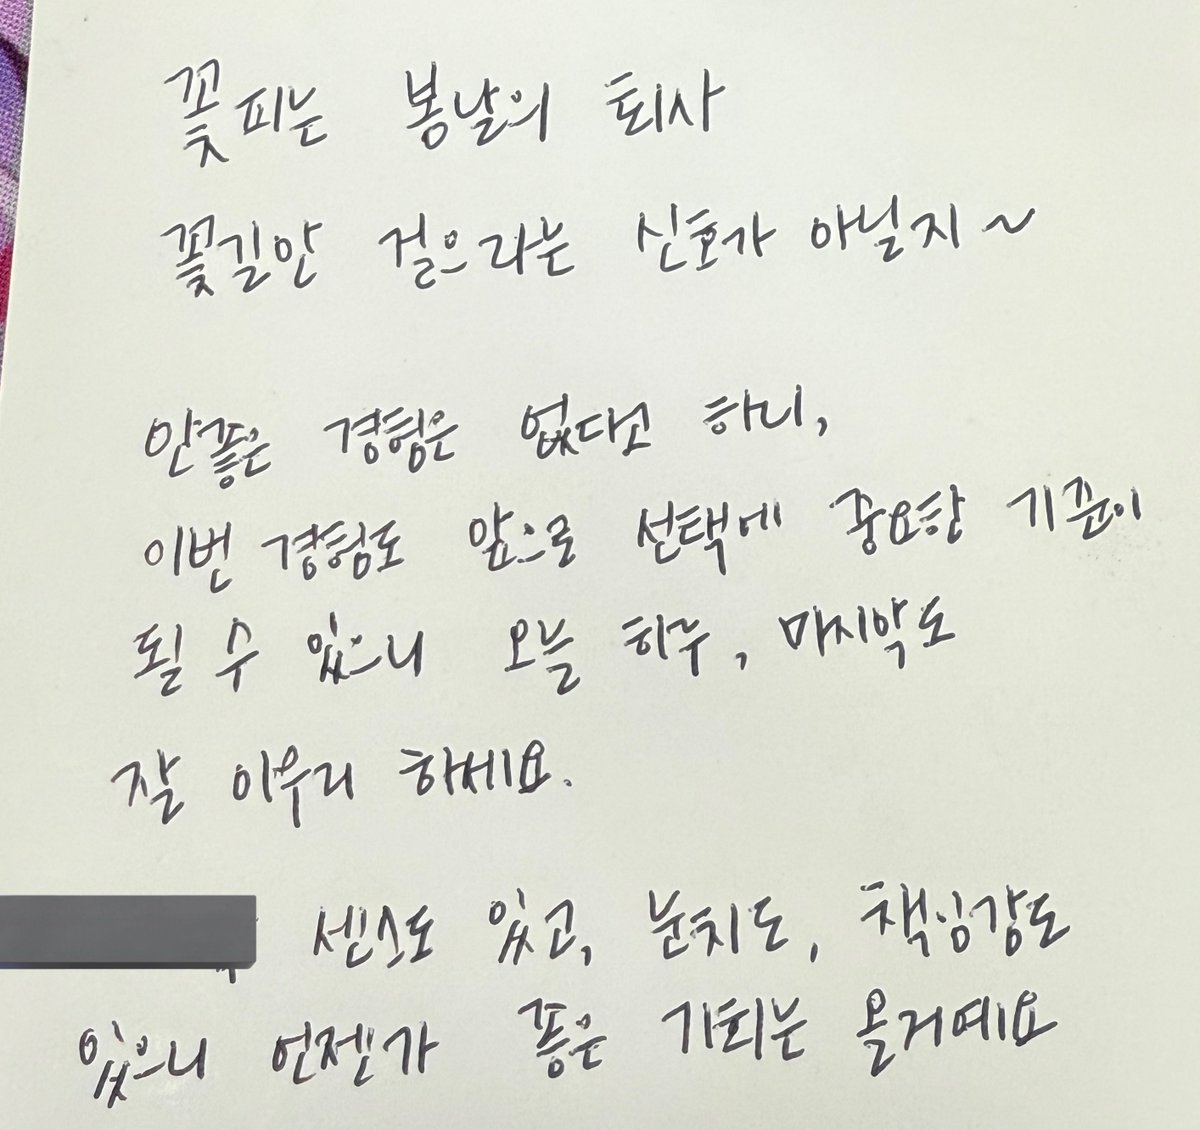 꽃피는 봄날의 퇴사
꽃길만 걸으라는 신호가 아닐지~
안좋은 경험은 없다고 하니,
이번 경험도 앞으로 선택에 중요한 기준이
될 수 있으니 오늘 하루, 마지막도
잘 마무리 하세요.
센스도 있고, 눈치도, 책임감도
있으니 언젠가 좋은 기회는 올거예요